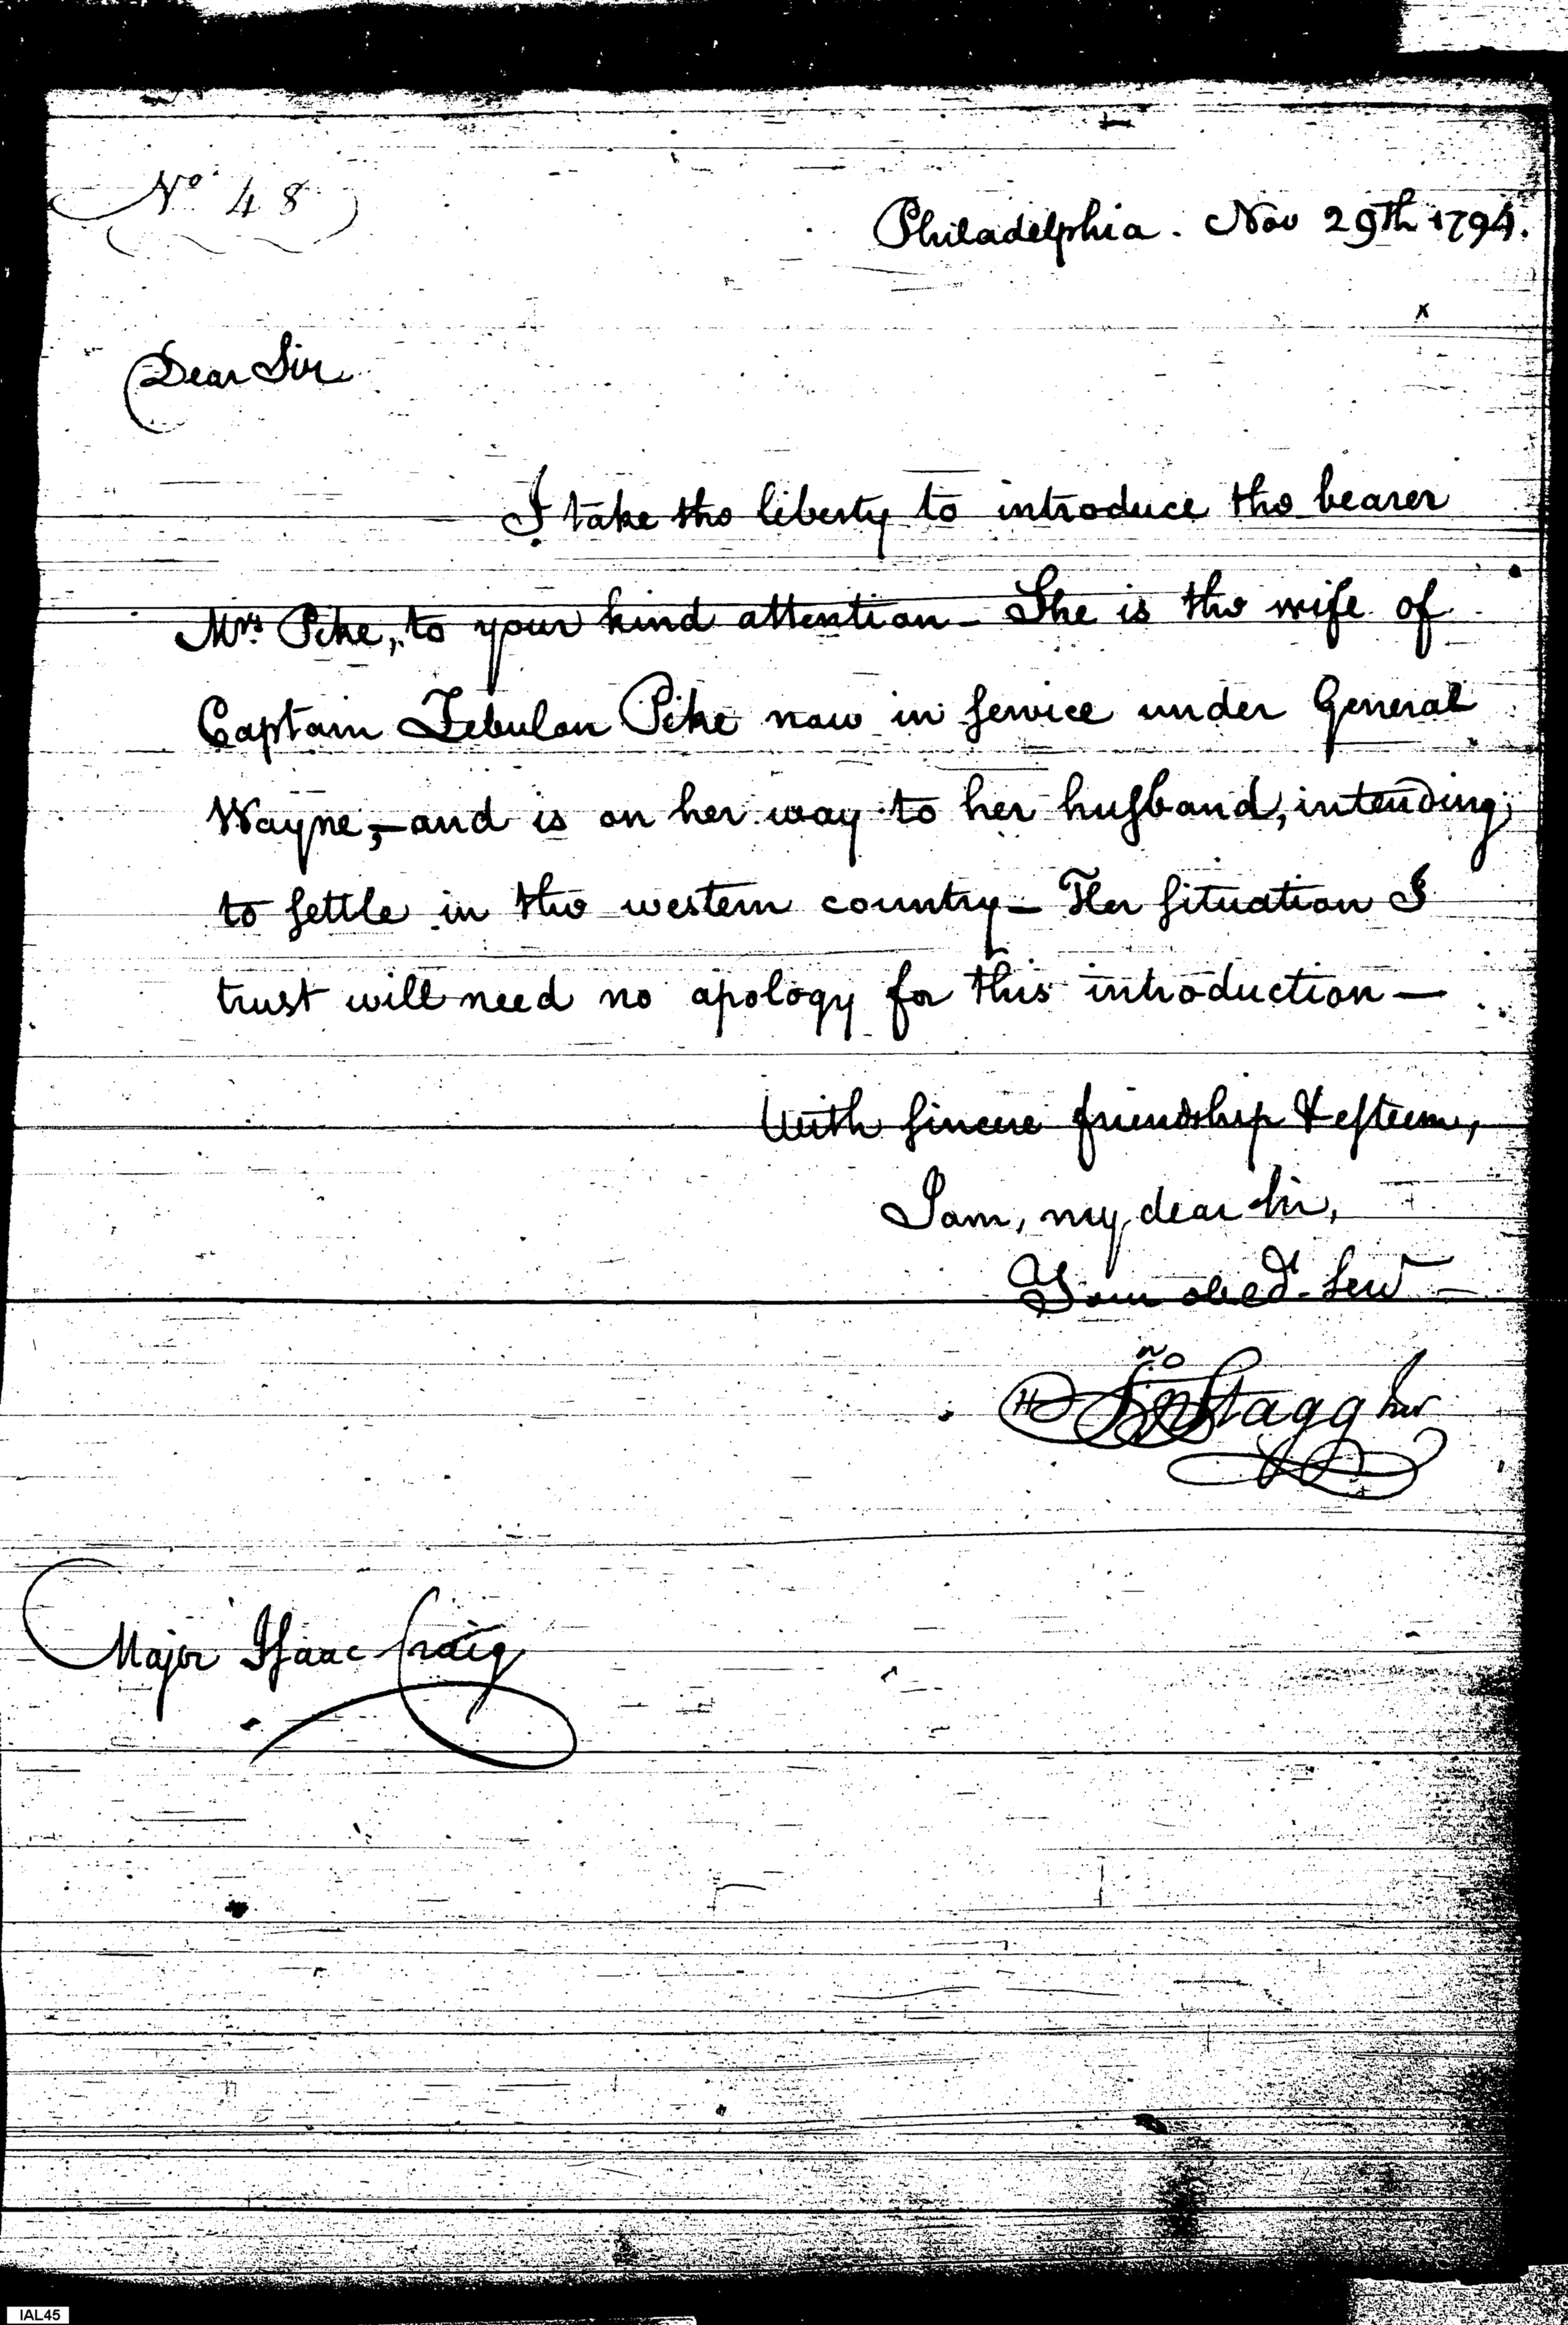 No 48
Philadelphia. Nov 29th 1794.
Dear Sir
I take the liberty to introduce the bearer
Mrs. Pike, to your kind attention - She is the wife of
Captain Zebulon Pike now in service under General
Wayne, - and is on her way to her husband, intending
to settle in the western country - Her situation I
trust will need no apology for this introduction -
With sincere friendship & esteem,
I am, my dear sir,
Your obedt. Servt
Jno Stagg Junr
Major Isaac Craig
IAL45